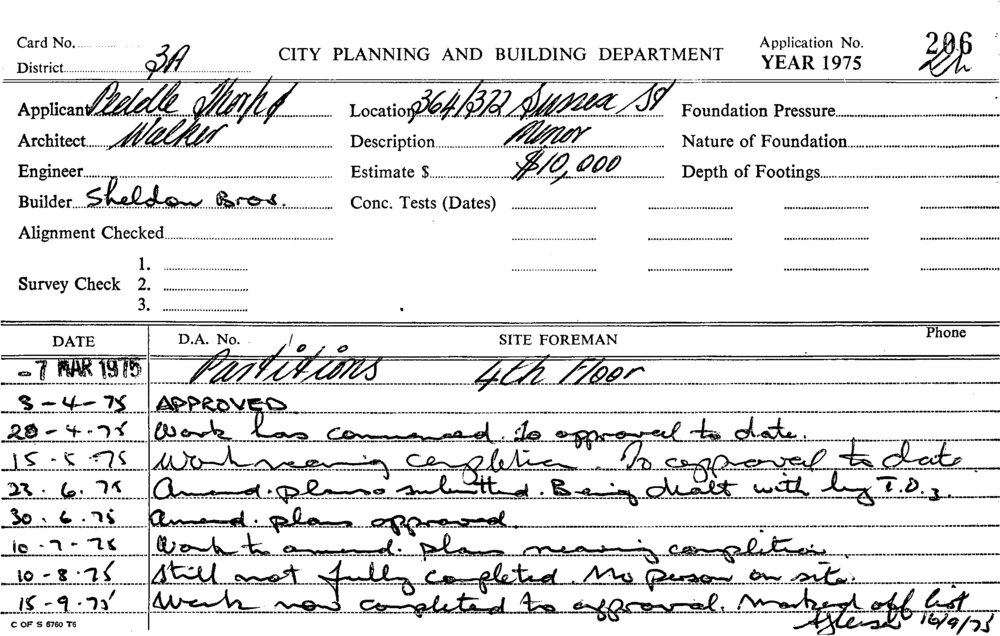 Card No.
District 3A
CITY PLANNING AND BUILDING DEPARTMENT
Application No. 206
YEAR 1975
Applicant Peddle Thorp &
Location 364/372 Sussex St
Foundation Pressure
Architect Walker
Description Minor
Nature of Foundation
Engineer
Estimate $ $10,000
Depth of Footings
Builder Sheldon Bros.
Conc. Tests (Dates)
Alignment Checked
Survey Check 1.
2.
3.
DATE D.A. No. SITE FOREMAN Phone
-7 MAR 1975 Partitions 4th Floor
8-4-75 APPROVED
28-4-75 Work has commenced. To approval to date.
15-5-75 Work nearing completion. To approval to date
23.6.75 Amend. plans submitted. Being dealt with by T.O.3.
30.6.75 Amend. plans approved.
10-7-75 Work to amend. plans nearing completion.
10-8-75 Still not fully completed. No person on site.
15-9-75 Work now completed to approval. Marked off list
16/9/75
C OF S 6760 T6